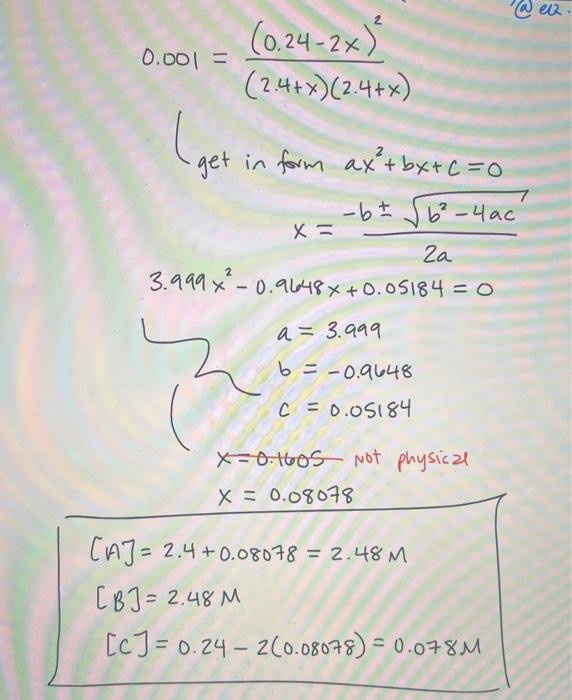 @ eq.
0.001 = (0.24-2x)² / (2.4+x)(2.4+x)
get in form ax²+bx+c=0
x = -b ± √b²-4ac / 2a
3.999x² - 0.9648x + 0.05184 = 0
a = 3.999
b = -0.9648
c = 0.05184
x = 0.1605 Not physical
x = 0.08078
[A] = 2.4 + 0.08078 = 2.48 M
[B] = 2.48 M
[C] = 0.24 - 2(0.08078) = 0.078M